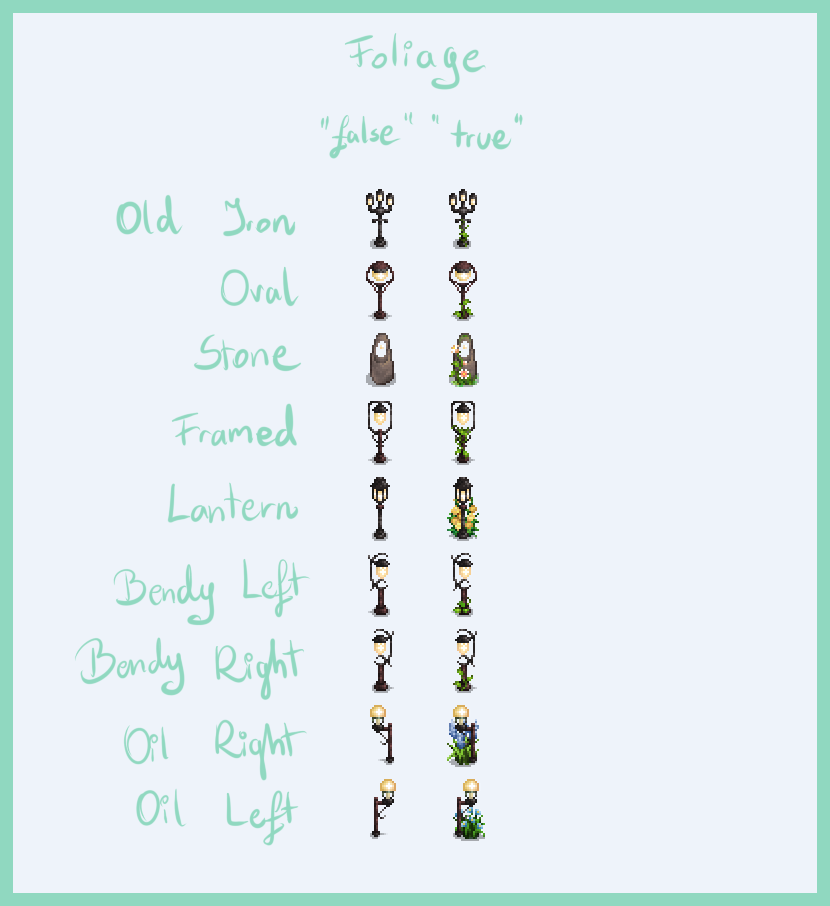 Foliage
"false" "true"
Old Iron
Oval
Stone
Framed
Lantern
Bendy Left
Bendy Right
Oil Right
Oil Left